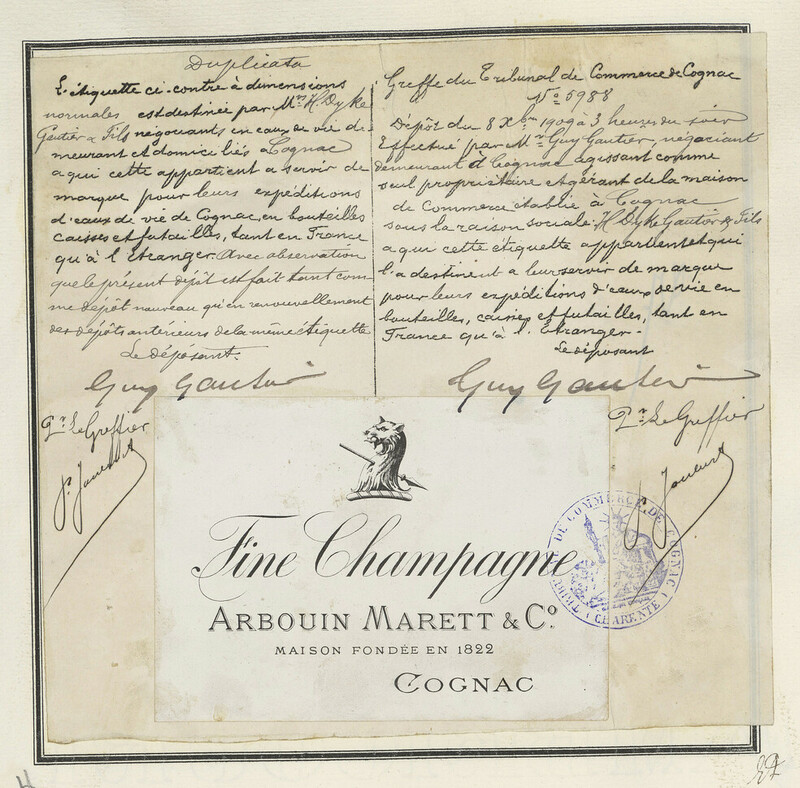 Duplicata
L'étiquette ci-contre à dimensions
normales est destinée par Mrs H. Dyke
Gautier & Fils négociants en eaux de vie de-
meurant et domiciliés à Cognac
a qui cette appartient a servir de
marque pour leurs expéditions
d'eaux de vie de Cognac, en bouteilles
caisses et futailles, tant en France
qu'à l'Étranger. Avec observation
que le présent dépôt est fait tant com-
me dépôt nouveau qu'en renouvellement
des dépôts antérieurs de la même étiquette
Le déposant.
Guy Gautier
Pr. Le Greffier
Greffe du Tribunal de Commerce de Cognac
No 5988
Dépôt du 8 Xbre 1909 à 3 heures du soir
Effectué par Mr Guy Gautier, négociant
demeurant à Cognac agissant comme
seul propriétaire et gérant de la maison
de Commerce établie à Cognac
sous la raison sociale: H. Dyke Gautier & Fils
a qui cette étiquette appartient et qui
l'a destinent a leur servir de marque
pour leurs expéditions d'eaux de vie en
bouteilles, caisses et futailles, tant en
France qu'à l'Étranger.
Le déposant
Guy Gautier
Pr. Le Greffier
Fine Champagne
ARBOUIN MARETT & Co.
MAISON FONDÉE EN 1822
COGNAC
TRIBUNAL DE COMMERCE DE COGNAC
(CHARENTE)